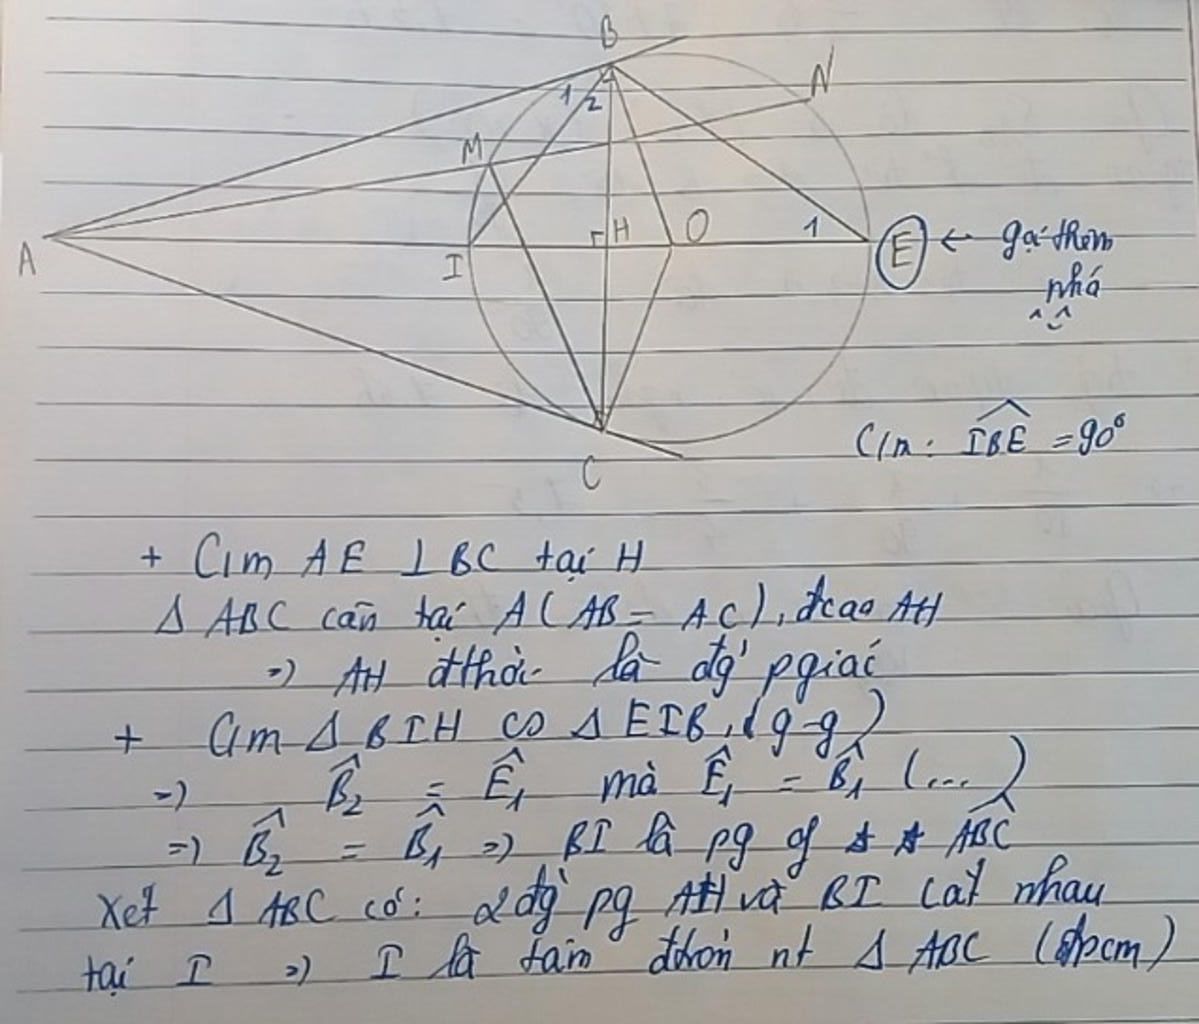 B
N
1 2
M
A
I
H
O
1
E ← gọi thêm
nhá
^ ^
C
C/m: IBE = 90°
+ C/m AE ⊥ BC tại H
Δ ABC cân tại A (AB = AC), đcao AH
=) AH đthời là đg' pgiác
+ C/m Δ BIH ∽ Δ EIB, (g-g)
=) B̂₂ = Ê₁ mà Ê₁ = B̂₁ (...)
=) B̂₂ = B̂₁ =) BI là pg of ABC
Xét Δ ABC có: 2 đg pg AH và BI cắt nhau
tại I =) I là tâm đtròn nt Δ ABC (đpcm)